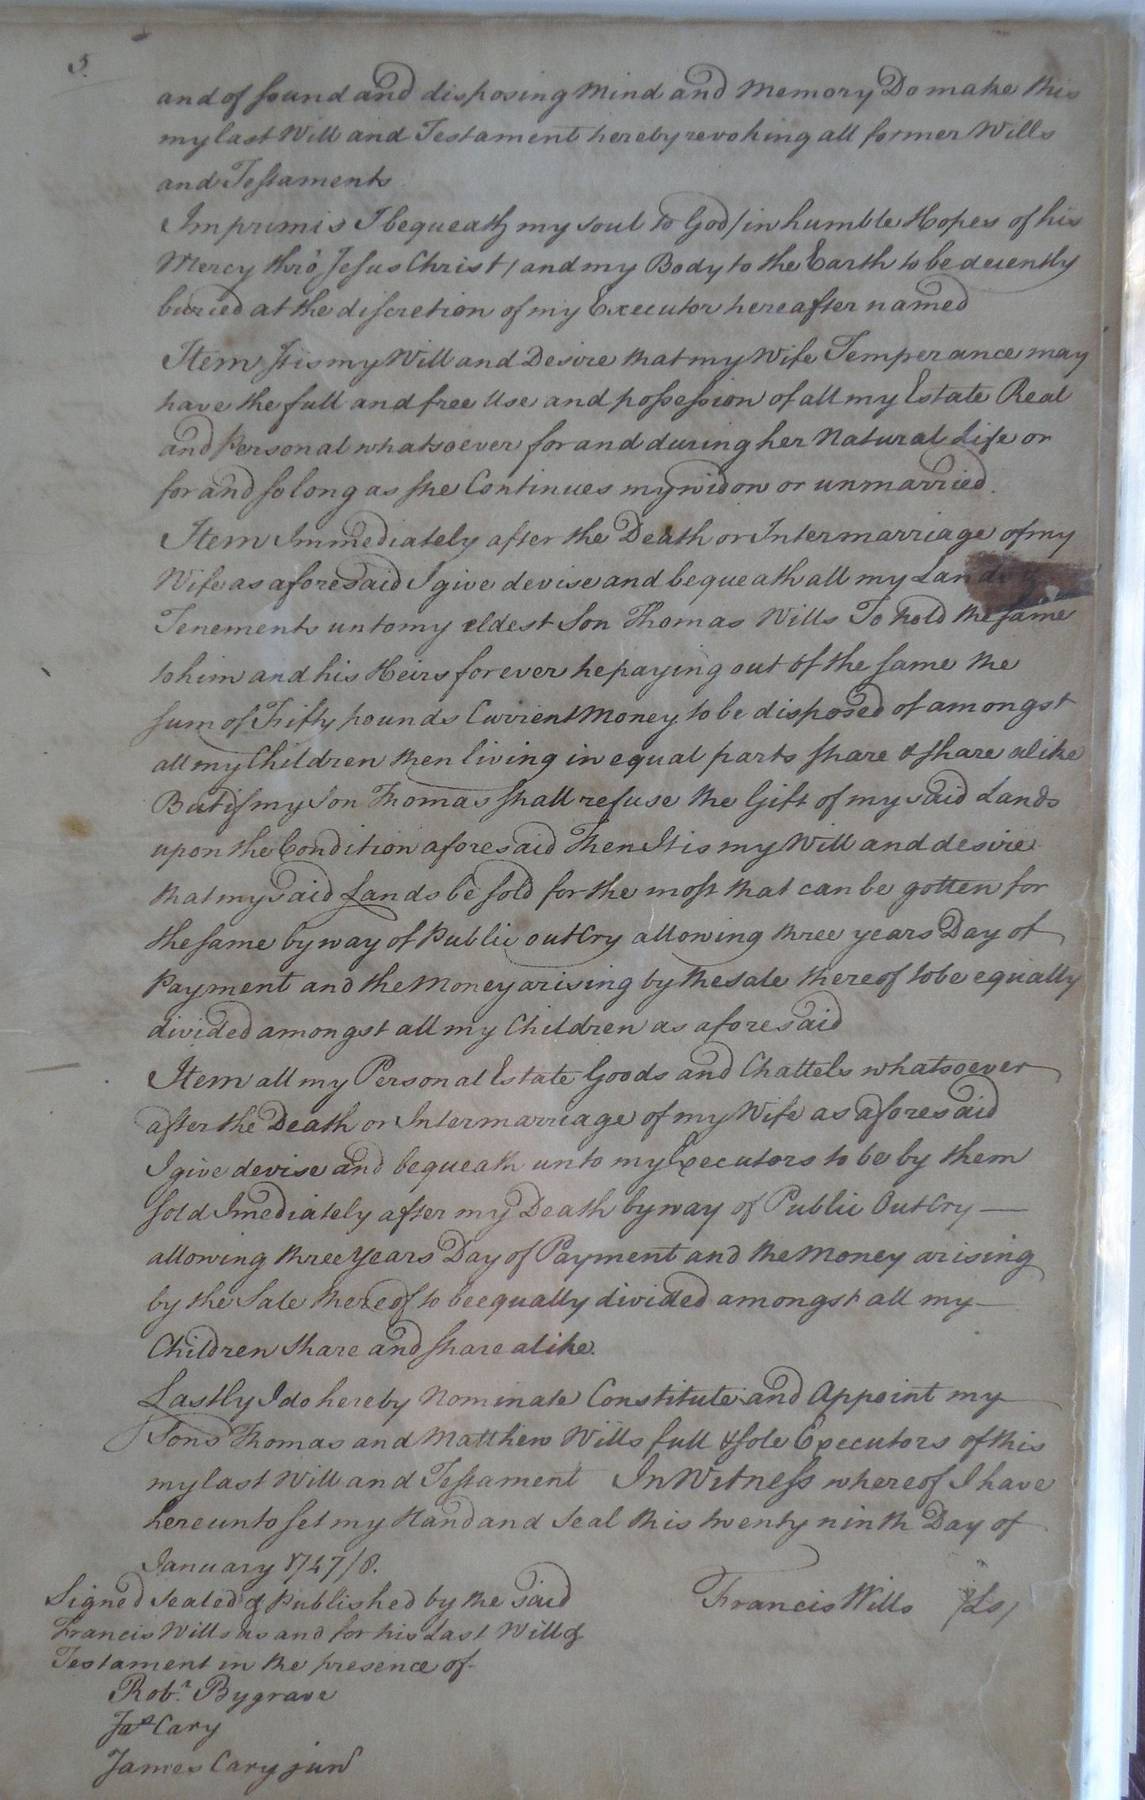 3.
and of sound and disposing Mind and Memory Do make this
my last Will and Testament hereby revoking all former Wills
and Testaments
Imprimis I bequeath my soul to God / in humble Hopes of his
Mercy thro' Jesus Christ / and my Body to the Earth to be decently
buried at the discretion of my Executor hereafter named
Item It is my Will and Desire that my Wife Temperance may
have the full and free Use and possession of all my Estate Real
and Personal whatsoever for and during her Natural Life or
for and so long as she Continues my widow or unmarried.
Item Immediately after the Death or Intermarriage of my
Wife as aforesaid I give devise and bequeath all my Lands
Tenements unto my eldest Son Thomas Wills To hold the same
to him and his Heirs forever he paying out of the same the
sum of Fifty pounds Current Money to be disposed of amongst
all my Children then living in equal parts share & share alike
But if my Son Thomas shall refuse the Gift of my said Lands
upon the Condition aforesaid Then It is my Will and desire
that my said Lands be sold for the most that can be gotten for
the same by way of Public outCry allowing three years Day of
Payment and the Money arising by the sale thereof to be equally
divided amongst all my Children as aforesaid
Item all my Personal Estate Goods and Chattels whatsoever
after the Death or Intermarriage of my Wife as aforesaid
I give devise and bequeath unto my Executors to be by them
sold Imediately after my Death by way of Public OutCry —
allowing three Years Day of Payment and the Money arising
by the Sale thereof to be equally divided amongst all my —
Children share and share alike.
Lastly I do hereby Nominate Constitute and Appoint my
Sons Thomas and Matthew Wills full & sole Executors of this
my last Will and Testament In Witness whereof I have
hereunto set my Hand and Seal this twenty ninth Day of
January 1747/8.
Signed Sealed & Published by the said
Francis Wills as and for his Last Will &
Testament in the presence of
Francis Wills (Ls)
Robt. Bygrave
Jas Cary
James Cary junr